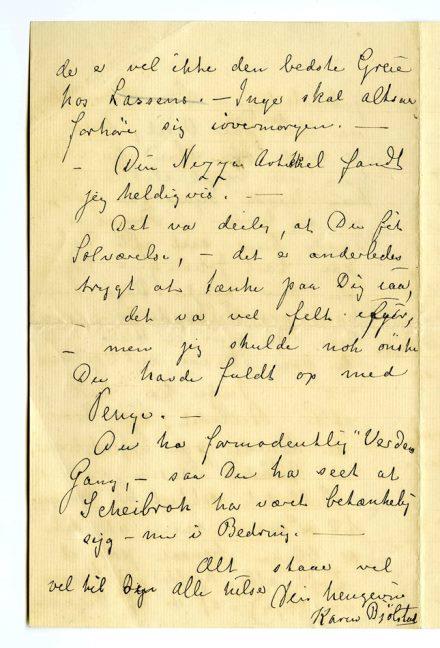 de e vel ikke den bedste Greie
hos Lassens. — Inge skal altsaa
forhöre sig iovermorgen. —
- Din Nizza Artikkel fandt
jeg heldigvis. —
Det va deilig, at Du fik
Solværelse, – det e anderledes
trygt at tænke paa Dig iaar,
det va vel fælt ifjor,
– men jeg skulde nok önske
Du havde fuldt op med
Penge. —
Du ha formodentlig "Verdens
Gang, – saa Du ha seet at
Scheibrok ha været betænkelig
syg – nu i Bedring. —
Alt staae vel
vel til alle hilse Din hengivne
Karen Bjölstad